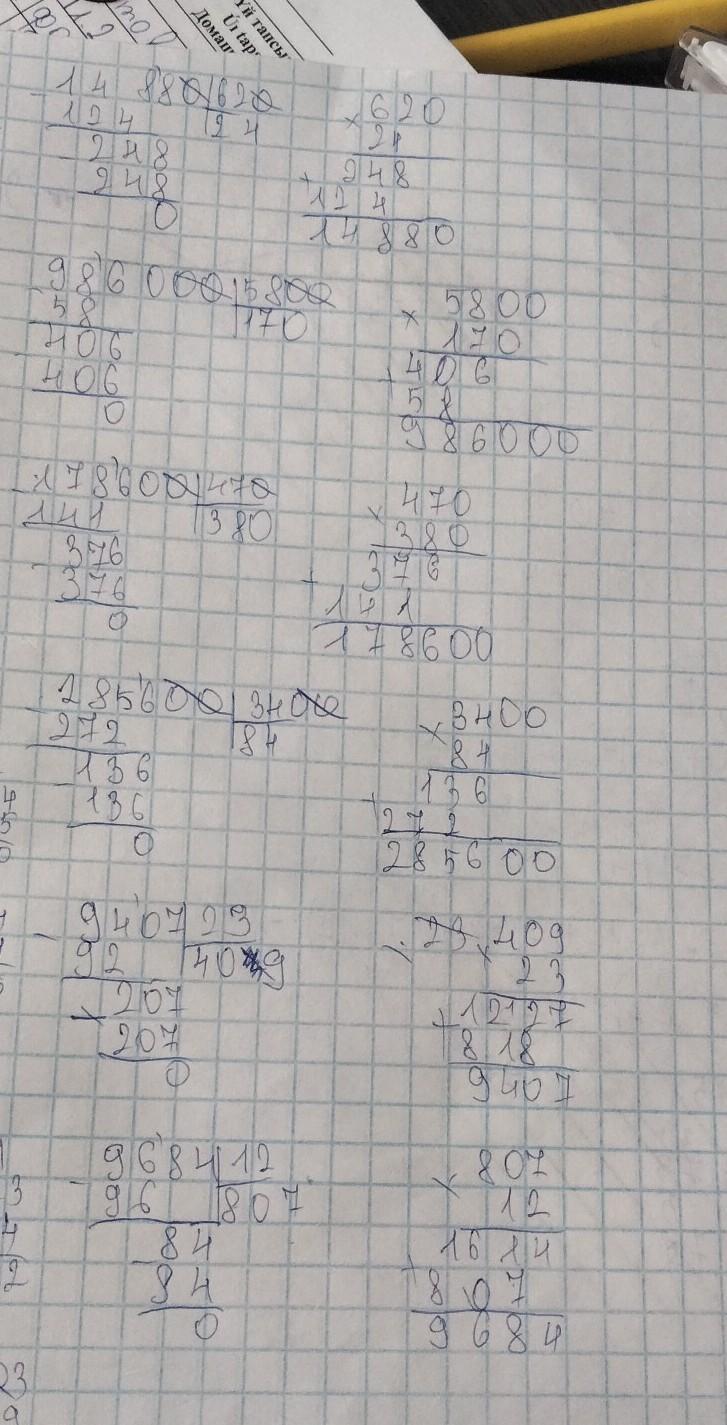 Үй тапсы
Úi tap
Домаш
14 880 620 620
124 24 × 24
248 248
248 + 124
0 14880
986000 5800 5800
58 170 × 170
406 406
406 + 58
0 986000
178600 470 470
141 380 × 380
376 376
376 + 141
0 178600
285600 3400 3400
272 84 × 84
136 136
136 + 272
0 285600
9407 23 23 409
92 409 × 23
207 12127
207 + 818
0 9407
9684 12 807
96 807 × 12
84 1614
84 + 807
0 9684